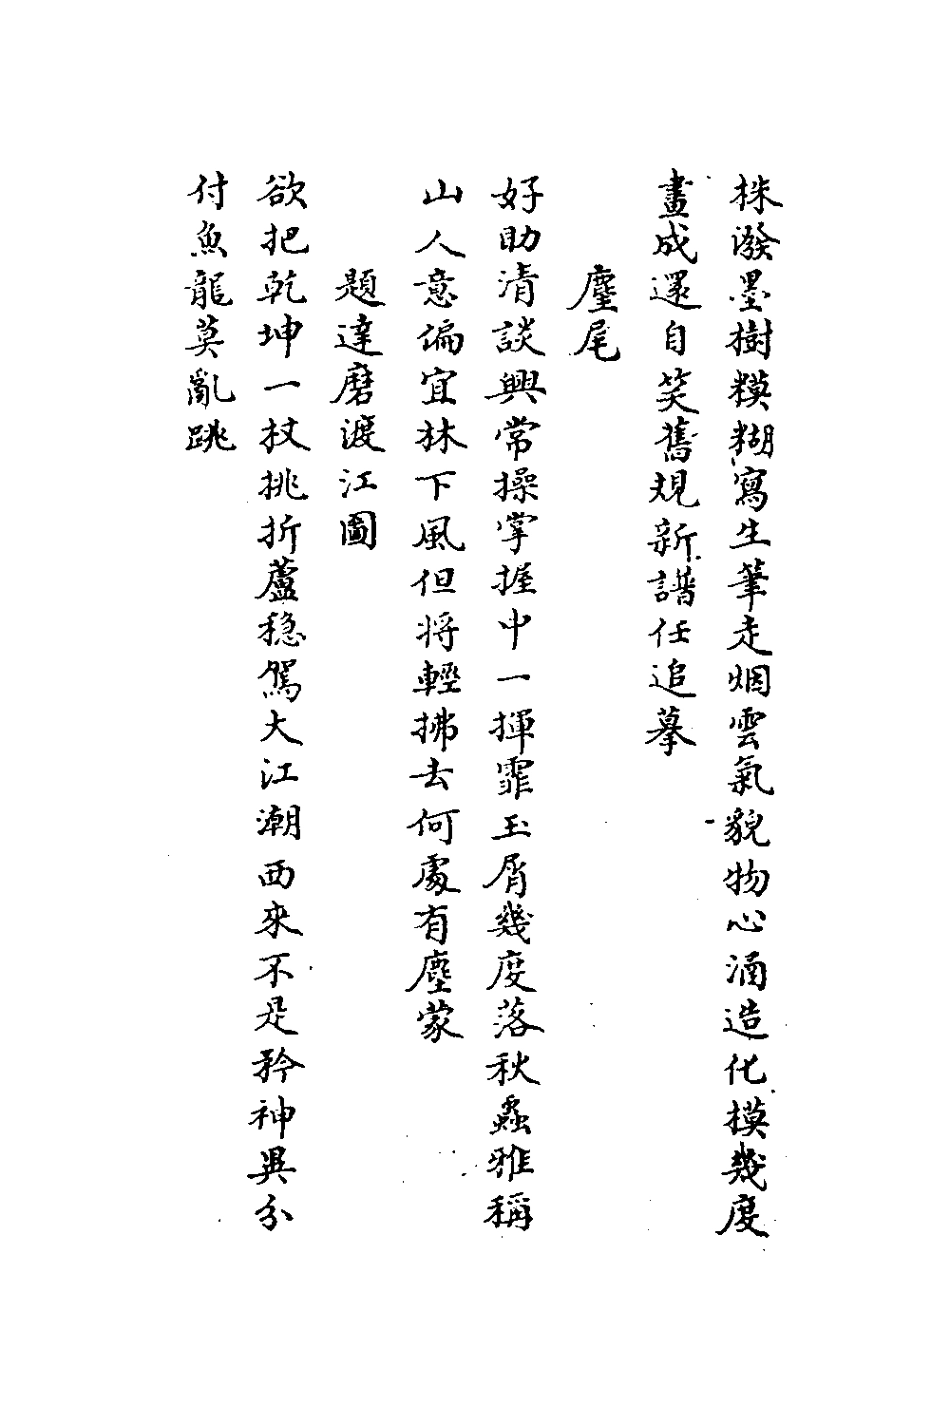 株潑墨樹糢糊寫生筆走烟雲氣貌物心涵造化摸幾度
畫成還自笑舊規新譜任追摹
麈尾
好助清談興常操掌握中一揮霏玉屑幾度落秋蟲雅稱
山人意偏宜林下風但将輕拂去何處有塵蒙
題達磨渡江圖
欲把乾坤一杖挑折蘆穏駕大江潮西來不是矜神異分
付魚龍莫亂跳